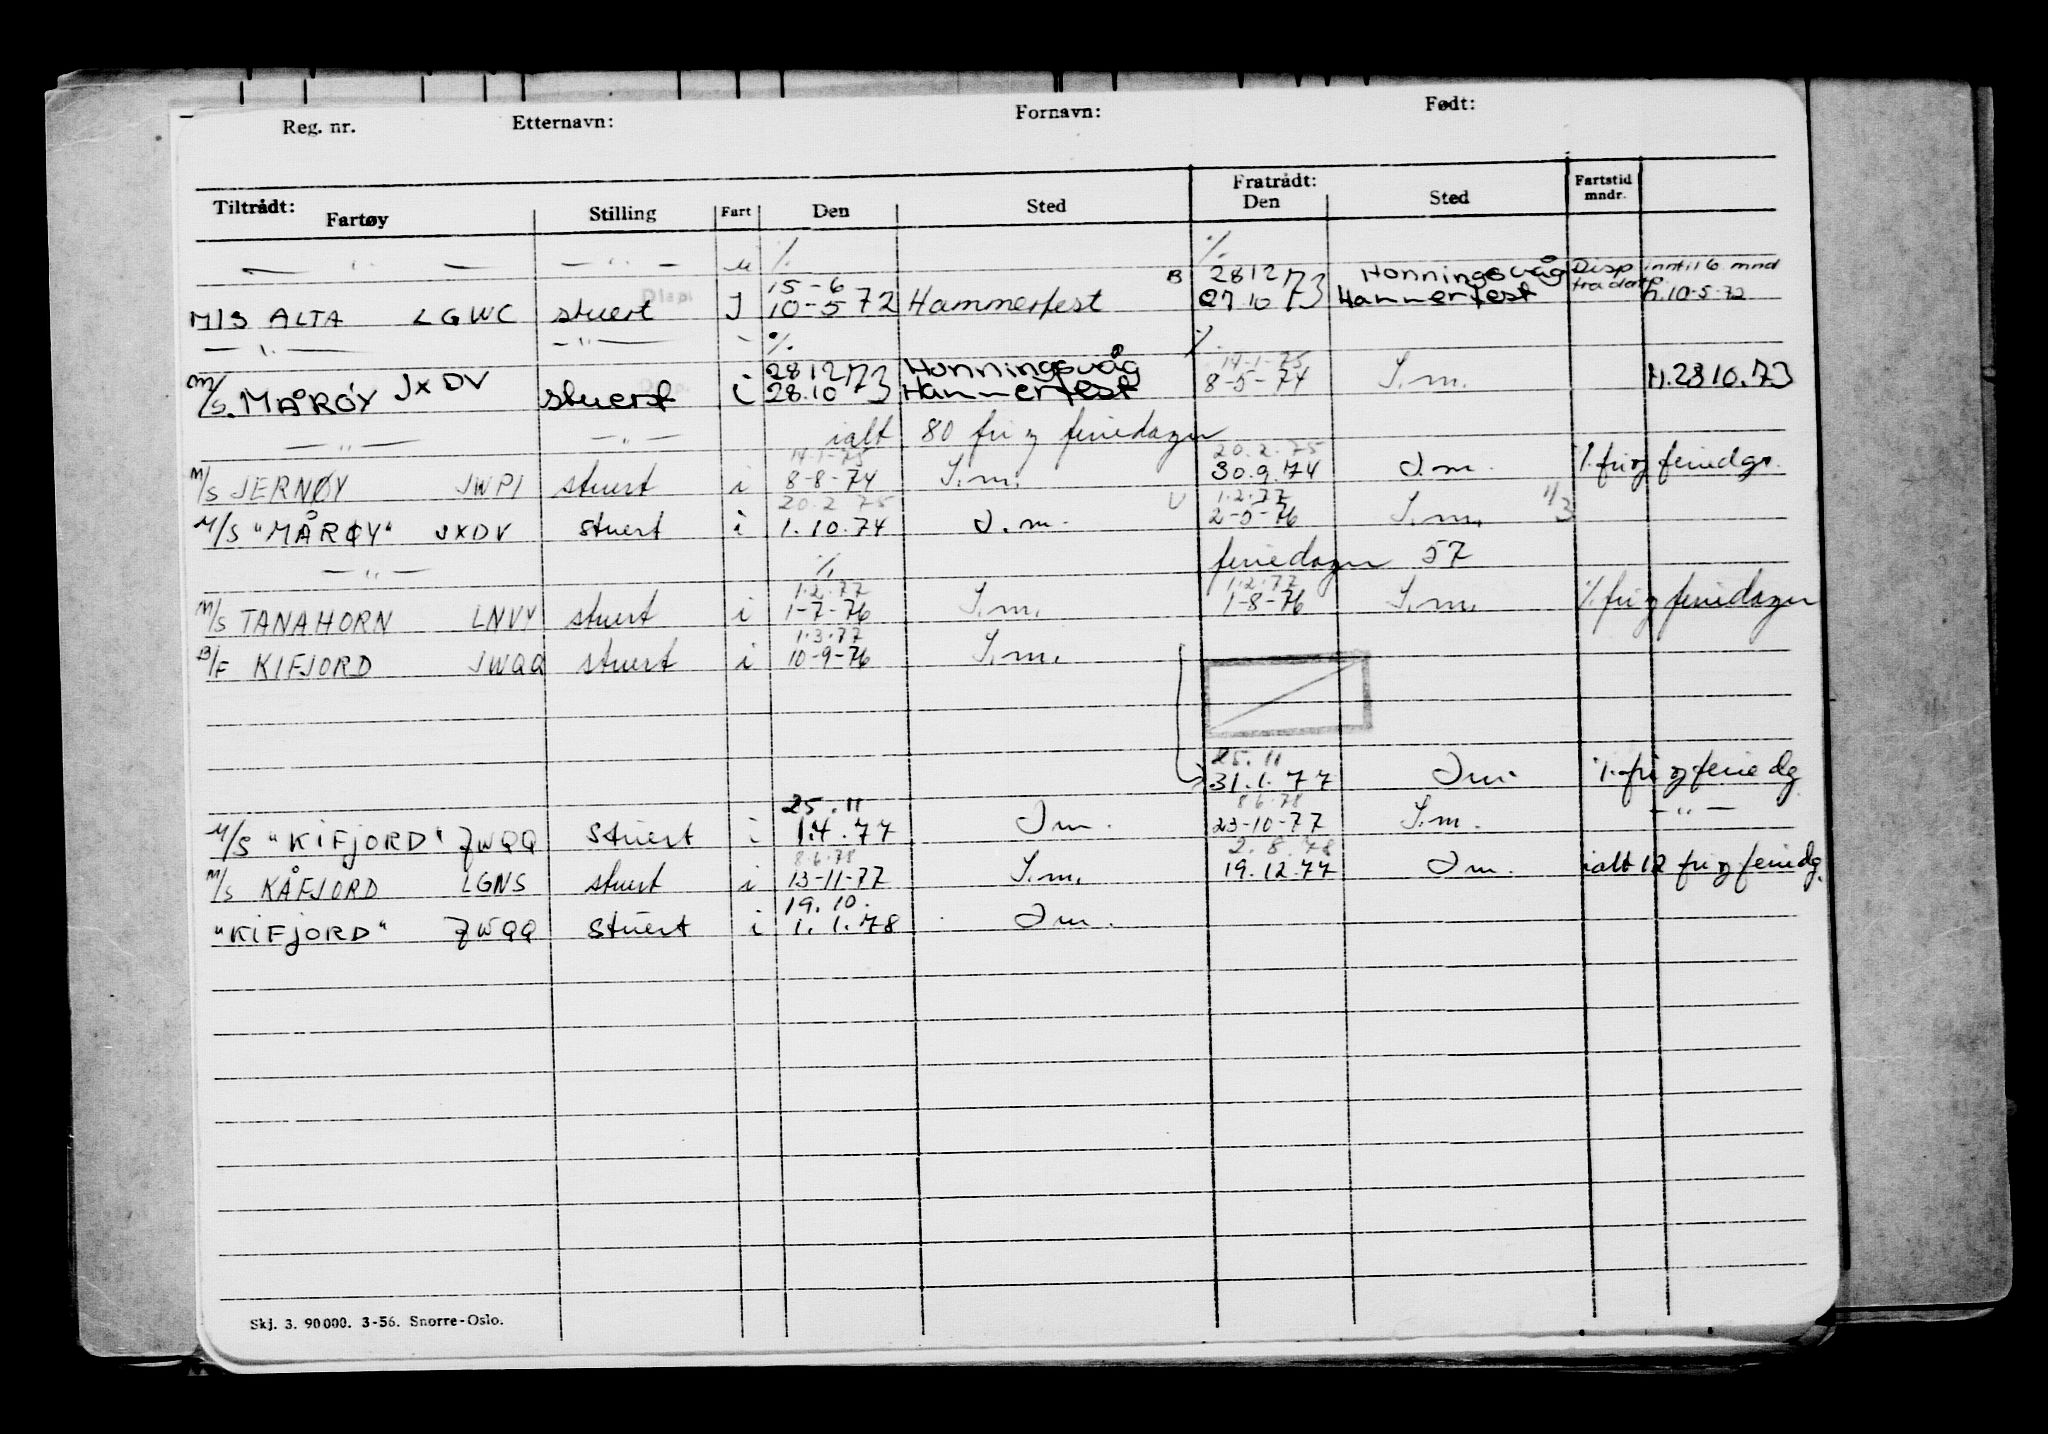 Reg. nr. Etternavn: Fornavn: Født:
Tiltrådt: Fratrådt: Fartstid
Fartøy Stilling Fart Den Sted Den Sted mndr.
— " — — " — u % %
15-6 B 28 12 73 Honningsvåg Disp inntil 6 mnd
M/S ALTA LGWC stuert I 10-5 72 Hammerfest 27.10 73 Hammerfest fra dato h.10-5-72
— " — — " — - % %
28 12 73 Honningsvåg 14-1-75
M/S. MÅRØY JXDV stuert i 28.10 73 Hammerfest 8-5-74 S.m. h.28 10.73
— " — — " — ialt 80 fri og feriedager
14-1-75 20.2.75
M/S JERNØY JWPI stuert i 8-8-74 S.m. 30.9.74 S.m. % fri og feriedgr.
20.2 75 v 1.2.77 11/3
M/S "MÅRØY" JXDV stuert i 1.10.74 S.m. 2-5-76 S.m.
— " — % feriedager 57
1.2.77 1.2.77
M/S TANAHORN LNVY stuert i 1-7-76 S.m. 1-8-76 S.m. % fri og feriedager
1.3.77
B/F KIFJORD JWQQ stuert i 10-9-76 S.m.
25.11
31.1.77 S.m. % fri og feriedg
25.11 8.6.78
M/S "KIFJORD" JWQQ stuert i 1.4.77 S.m. 23-10-77 S.m. - " -
8.6.78 2.8.78
M/S KÅFJORD LGNS stuert i 13-11-77 S.m. 19.12.77 S.m. ialt 12 fri og feriedg.
19.10.
"KIFJORD" JWQQ stuert i 1.1.78 S.m.
Skj. 3. 90000. 3-56. Snorre-Oslo.